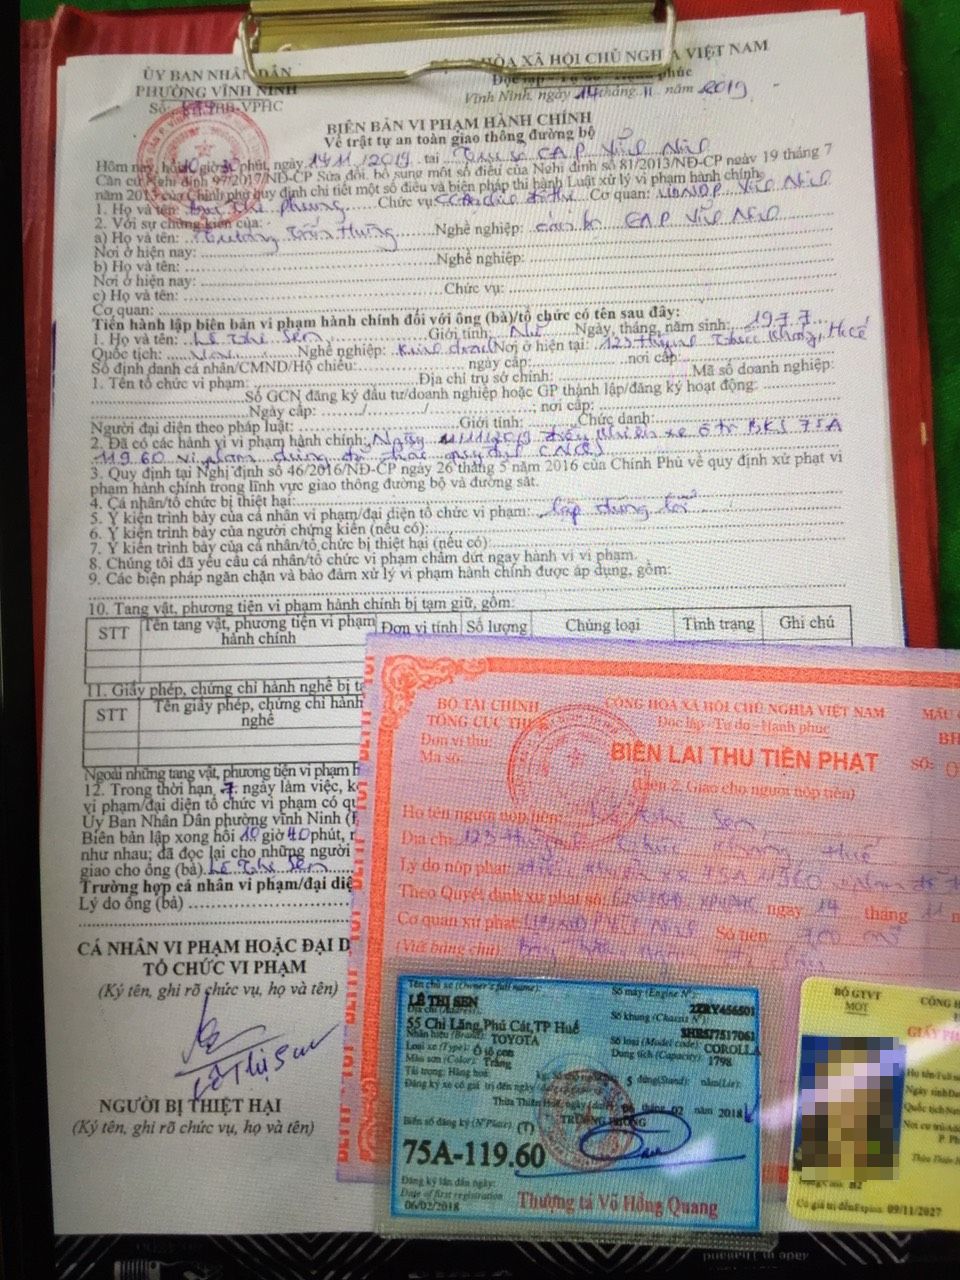 ỦY BAN NHÂN DÂN
HÒA XÃ HỘI CHỦ NGHĨA VIỆT NAM
PHƯỜNG VĨNH NINH
Độc lập - Tự do - Hạnh phúc
Số: /BB-VPHC
Vĩnh Ninh, ngày 14 tháng 11 năm 2019
BIÊN BẢN VI PHẠM HÀNH CHÍNH
Về trật tự an toàn giao thông đường bộ
Hôm nay, hồi 10 giờ 30 phút, ngày 14/11/2019 tại Trụ sở CAP Vĩnh Ninh
Căn cứ Nghị định 97/2017/NĐ-CP Sửa đổi, bổ sung một số điều của Nghị định số 81/2013/NĐ-CP ngày 19 tháng 7
năm 2013 của Chính phủ quy định chi tiết một số điều và biện pháp thi hành Luật xử lý vi phạm hành chính.
1. Họ và tên: Thị Phương Chức vụ: Cơ quan: UBND P Vĩnh Ninh
2. Với sự chứng kiến của:
a) Họ và tên: Trần Hưng Nghề nghiệp: cán bộ CAP Vĩnh Ninh
Nơi ở hiện nay:
b) Họ và tên: Nghề nghiệp:
Nơi ở hiện nay:
c) Họ và tên: Chức vụ:
Cơ quan:
Tiến hành lập biên bản vi phạm hành chính đối với ông (bà)/tổ chức có tên sau đây:
1. Họ và tên: Lê Thị Sen Giới tính: Nữ Ngày, tháng, năm sinh: 1977
Quốc tịch: Nghề nghiệp: Kinh doanh Nơi ở hiện tại: 123 Huỳnh Thúc Kháng, Huế
Số định danh cá nhân/CMND/Hộ chiếu: ngày cấp: nơi cấp:
1. Tên tổ chức vi phạm: Địa chỉ trụ sở chính: Mã số doanh nghiệp:
Số GCN đăng ký đầu tư/doanh nghiệp hoặc GP thành lập/đăng ký hoạt động:
Ngày cấp: / / ; nơi cấp:
Người đại diện theo pháp luật: Giới tính: Chức danh:
2. Đã có các hành vi vi phạm hành chính: Ngày 11/11/2019 điều khiển xe ô tô BKS 75A
119 60 vi phạm dừng đỗ
3. Quy định tại Nghị định số 46/2016/NĐ-CP ngày 26 tháng 5 năm 2016 của Chính Phủ về quy định xử phạt vi
phạm hành chính trong lĩnh vực giao thông đường bộ và đường sắt.
4. Cá nhân/tổ chức bị thiệt hại:
5. Ý kiến trình bày của cá nhân vi phạm/đại diện tổ chức vi phạm: lập đúng lỗi
6. Ý kiến trình bày của người chứng kiến (nếu có):
7. Ý kiến trình bày của cá nhân/tổ chức bị thiệt hại (nếu có):
8. Chúng tôi đã yêu cầu cá nhân/tổ chức vi phạm chấm dứt ngay hành vi vi phạm.
9. Các biện pháp ngăn chặn và bảo đảm xử lý vi phạm hành chính được áp dụng, gồm:
10. Tang vật, phương tiện vi phạm hành chính bị tạm giữ, gồm:
STT Tên tang vật, phương tiện vi phạm hành chính Đơn vị tính Số lượng Chủng loại Tình trạng Ghi chú
11. Giấy phép, chứng chỉ hành nghề bị
STT Tên giấy phép, chứng chỉ hành nghề
Ngoài những tang vật, phương tiện vi phạm
12. Trong thời hạn 7 ngày làm việc,
vi phạm/đại diện tổ chức vi phạm có
Ủy Ban Nhân Dân phường vĩnh Ninh
Biên bản lập xong hồi 10 giờ 40 phút,
như nhau; đã đọc lại cho những người
giao cho ông (bà) Lê Thị Sen
Trường hợp cá nhân vi phạm/đại diện
Lý do ông (bà)
CÁ NHÂN VI PHẠM HOẶC ĐẠI D
TỔ CHỨC VI PHẠM
(Ký tên, ghi rõ chức vụ, họ và tên)
Lê Thị Sen
NGƯỜI BỊ THIỆT HẠI
(Ký tên, ghi rõ chức vụ, họ và tên)
BỘ TÀI CHÍNH
CỘNG HÒA XÃ HỘI CHỦ NGHĨA VIỆT NAM
MẪU
TỔNG CỤC THUẾ
Độc lập - Tự do - Hạnh phúc
Đơn vị thu:
Mã số:
BIÊN LAI THU TIỀN PHẠT
SỐ:
(Liên 2: Giao cho người nộp tiền)
Họ tên người nộp tiền: Lê Thị Sen
Địa chỉ: 123 Huỳnh Thúc Kháng, Huế
Lý do nộp phạt: xe 75A 11960
Theo Quyết định xử phạt số: ngày 14 tháng 11
Cơ quan xử phạt: UBND P Vĩnh Ninh Số tiền:
(Viết bằng chữ):
Tên chủ xe (Owner's full name):
LÊ THỊ SEN
Số máy (Engine N°): 2ZRY456501
Địa chỉ (Address):
55 Chi Lăng,Phú Cát,TP Huế
Số khung (Chassis N°):
Nhãn hiệu (Brand): TOYOTA
Số loại (Model code): COROLLA
Loại xe (Type): Ô tô con
Dung tích (Capacity): 1798
Màu sơn (Color): Trắng
Tải trọng: Hàng hoá: kg; 5 đứng(Stand): nằm(Lie):
Đăng ký xe có giá trị đến ngày
Thừa Thiên Huế, ngày 06 tháng 02 năm 2018
Biển số đăng ký (N° Plate): (T)
TRƯỞNG PHÒNG
75A-119.60
Đăng ký lần đầu ngày:
Date of first registration
06/02/2018
Thượng tá Võ Hồng Quang
BỘ GTVT
MOT
CỘNG
GIẤY PH
Họ tên/Full
Ngày sinh/Da
Quốc tịch/Nat
Nơi cư trú/Ad
P. Ph
Thừa Thiên
B2
Có giá trị đến/Expires 09/11/2027